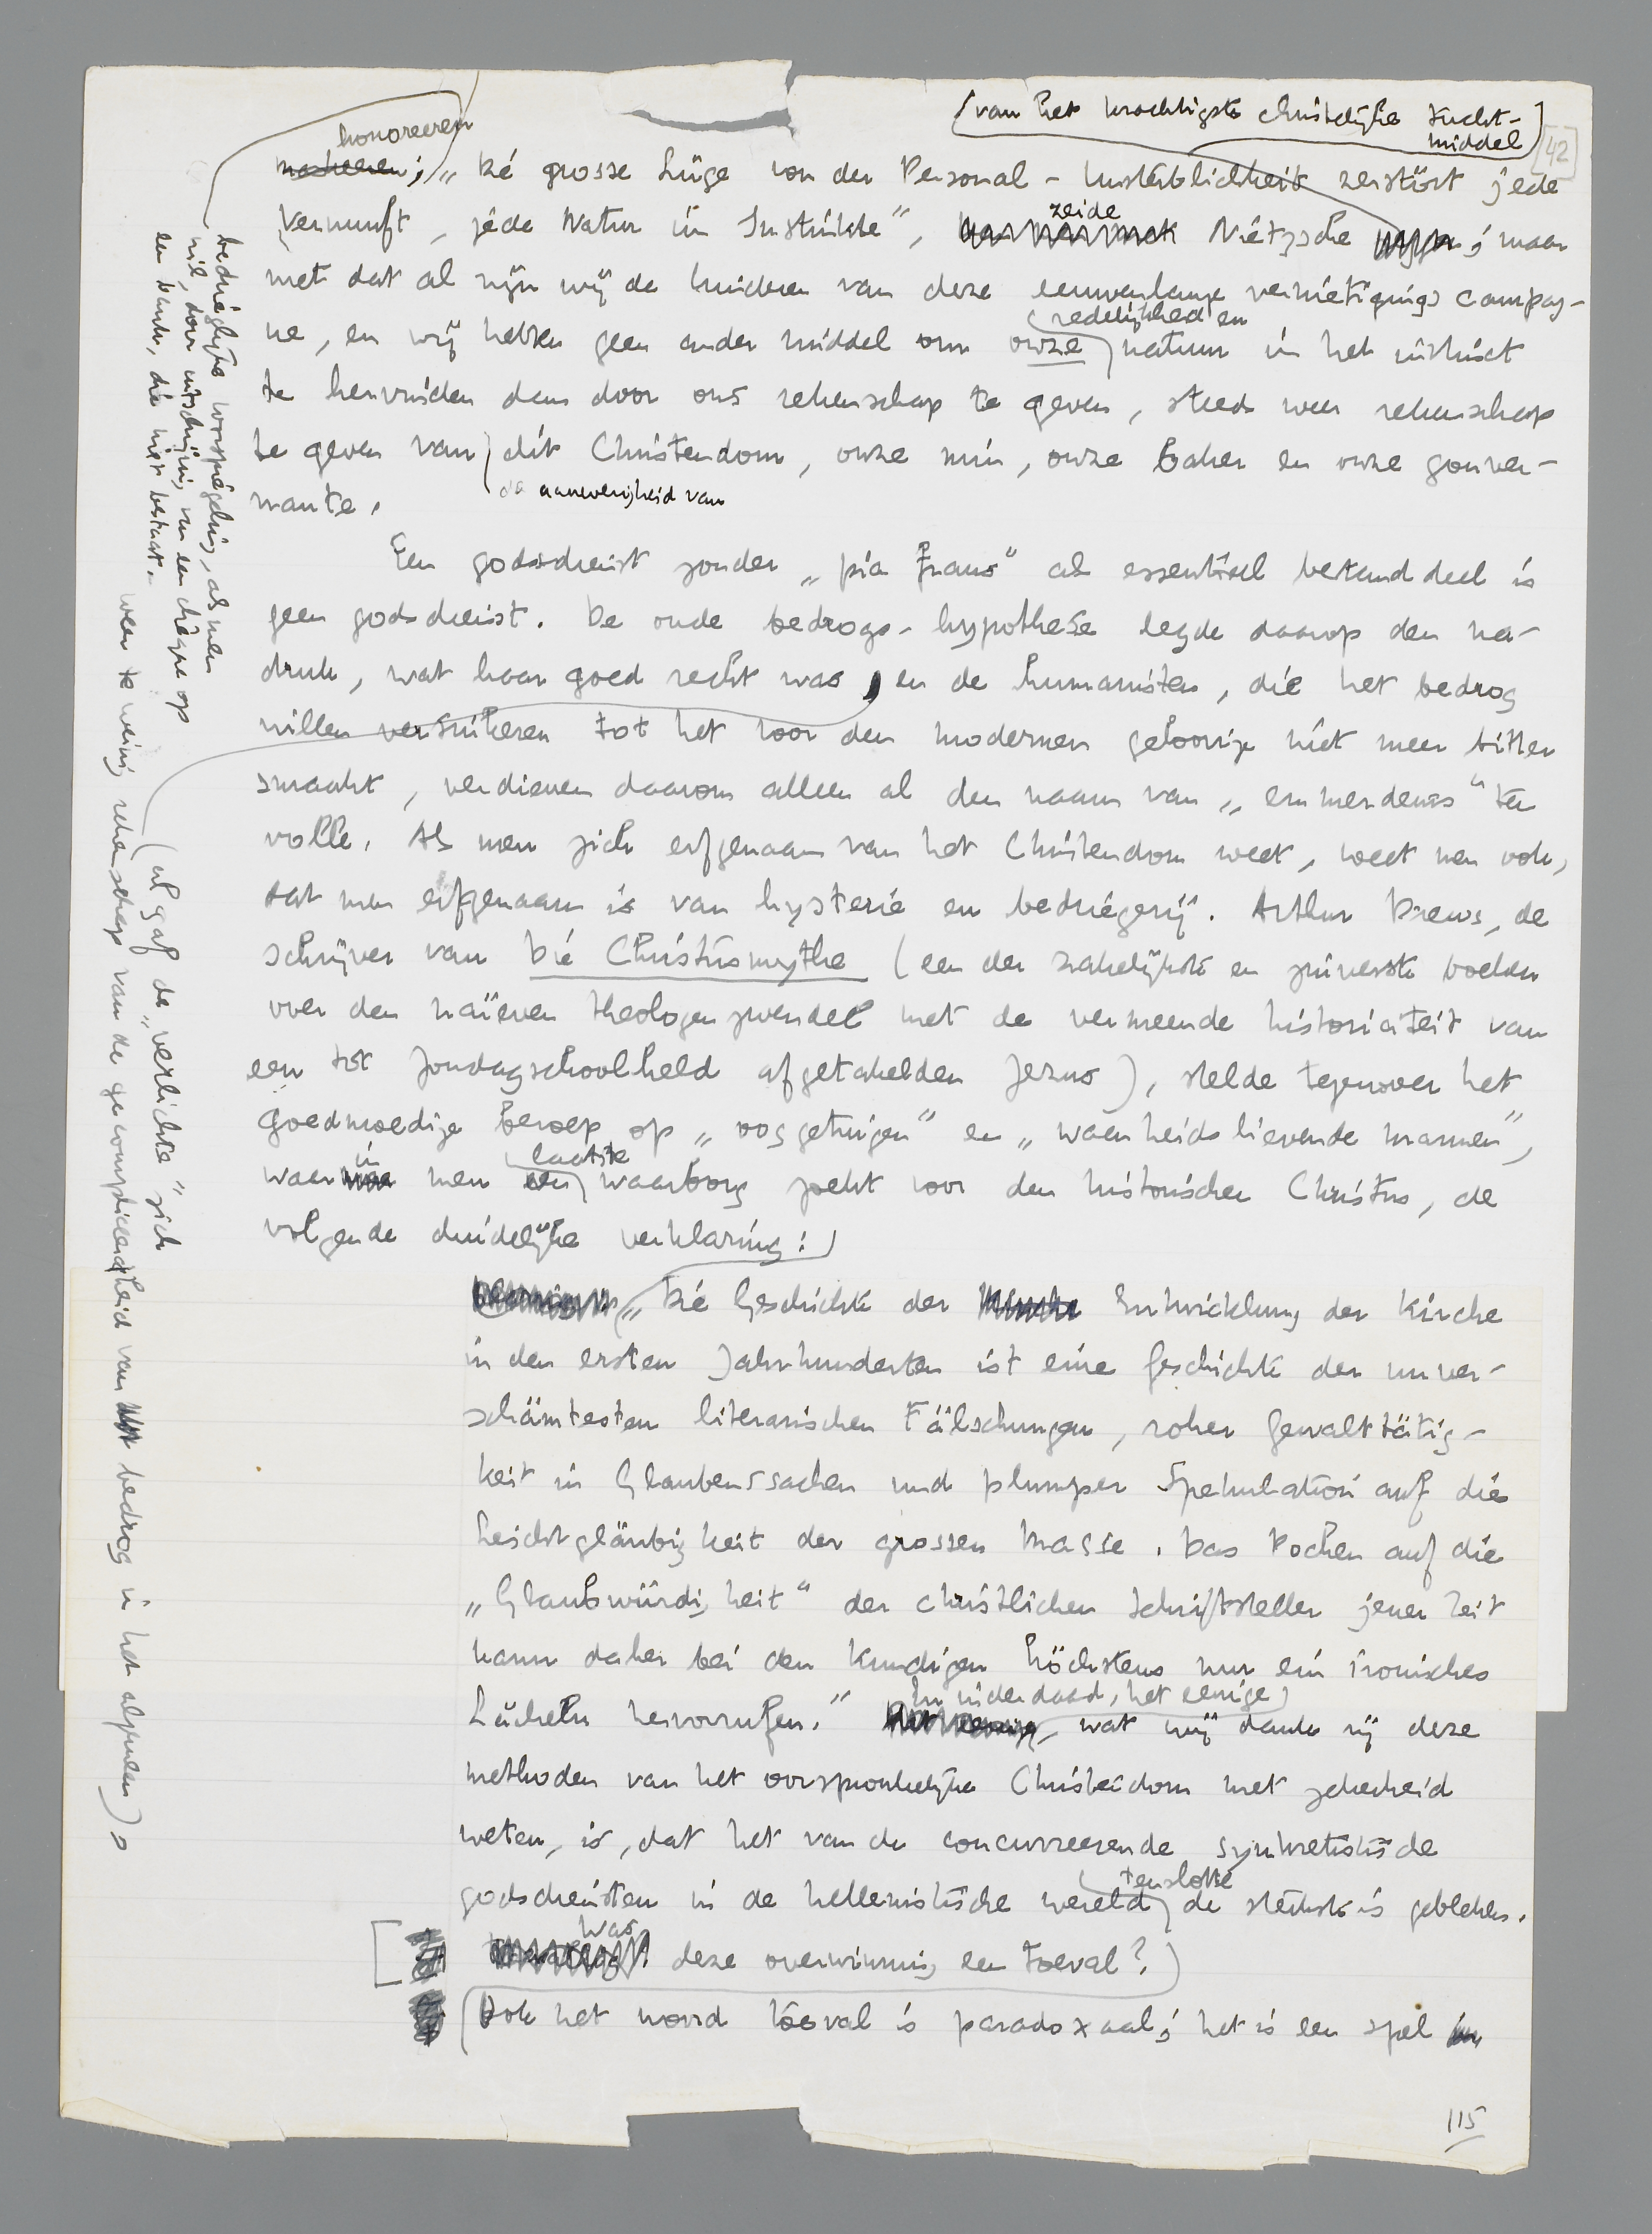 (van het krachtigste christelijke tucht-
middel)
[42]
honoreeren
; „Die grosse Lüge von der Personal-Unsterblichkeit zerstört jede
Vernunft, jede Natur im Instinkte”, zeide Nietzsche ; maar
met dat al zijn wij de kinderen van deze eeuwenlange vernietigingscampag-
ne, en wij hebben geen ander middel om onze redelijkheid en natuur in het instinct
te hervinden dan door ons rekenschap te geven, steeds weer rekenschap
te geven van dit Christendom, onze min, onze baker en onze gouver-
nante.
de aanwezigheid van
Een godsdienst zonder „pia fraus” als essentieel bestanddeel is
geen godsdienst. De oude bedrogs-hypothese legde daarop den na-
druk, wat haar goed recht was, en de humanisten, die het bedrog
willen versuikeren tot het voor den modernen geloovige niet meer bitter
smaakt, verdienen daarom alleen al den naam van „ ” ten
volle. Als men zich erfgenaam van het Christendom weet, weet men ook,
dat men erfgenaam is van hysterie en bedriegerij. Arthur Drews, de
schrijver van Die Christusmythe (een der zakelijkste en zuiverste boeken
over den naïeven theologenzwendel met de vermeende historiciteit van
een tot zondagschoolheld afgetakelden Jezus), stelde tegenover het
goedmoedige beroep op „ooggetuigen” en „waarheidslievende mannen”,
waarin men een laatste waarborg zoekt voor den historischen Christus, de
volgende duidelijke verklaring:
„Die Geschichte der Entwicklung der Kirche
in den ersten Jahrhunderten ist eine Geschichte der unver-
schämtesten literarischen Fälschungen, roher Gewalttätig-
keit in Glaubenssachen und plumper Spekulation auf die
Leichtgläubigkeit der grossen Masse. Das Pochen auf die
„Glaubwürdigkeit” der christlichen Schriftsteller jener Zeit
kann daher bei den Kundigen höchstens nur ein ironisches
Lächeln hervorrufen.” En inderdaad, het eenige, wat wij dank zij deze
methoden van het oorspronkelijke Christendom met zekerheid
weten, is, dat het van de concurreerende synkretistische
godsdiensten in de hellenistische wereld tenslotte de sterkste is gebleken.
[was deze overwinning een toeval?)
(Ook het woord toeval is paradoxaal; het is een spel
115
bedriegelijke voorspiegeling, als men
wil, door uitschrijving van een chèque op
een bank, die niet bestaat.
(al gaf de „verlichte” zich
weer te weinig rekenschap van de gecompliceerdheid van bedrog in het algemeen),